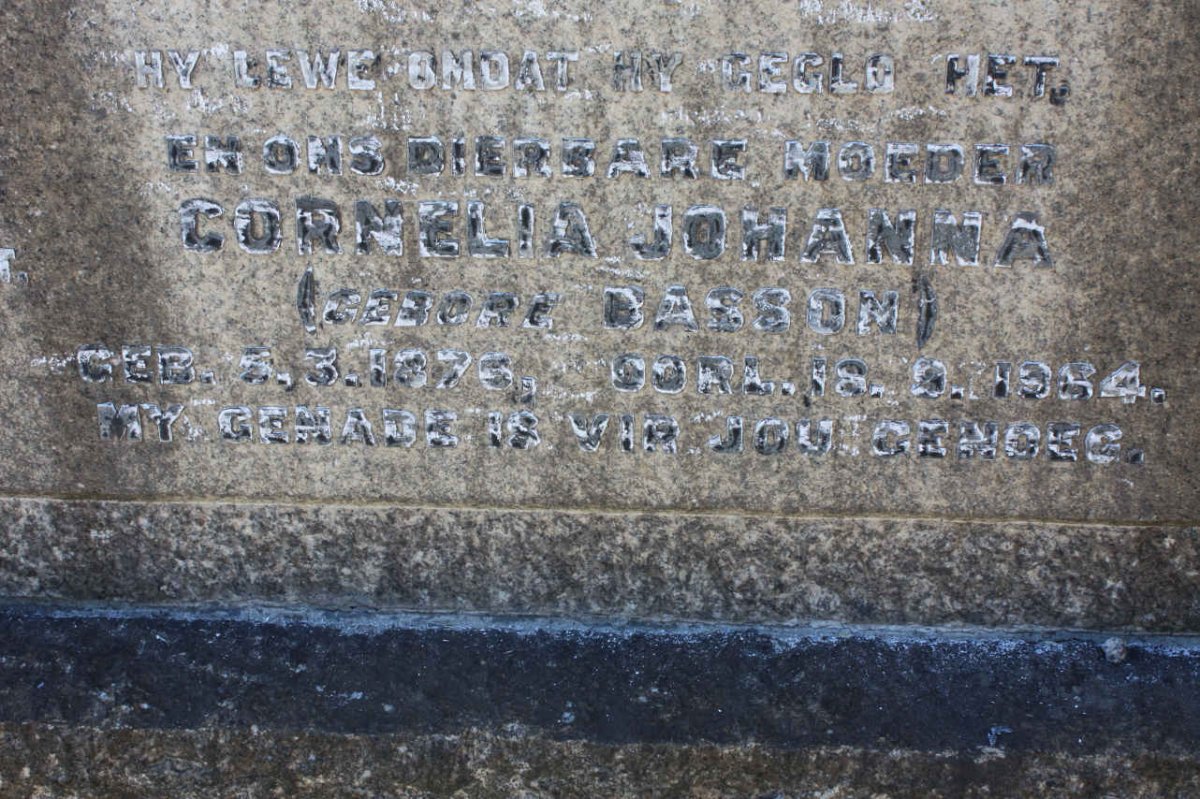 HY LEWE OMDAT HY GEGLO HET.
EN ONS DIERBARE MOEDER
CORNELIA JOHANNA
(GEBORE BASSON)
GEB. 5.3.1876, OORL. 18.9.1964.
MY GENADE IS VIR JOU GENOEG.